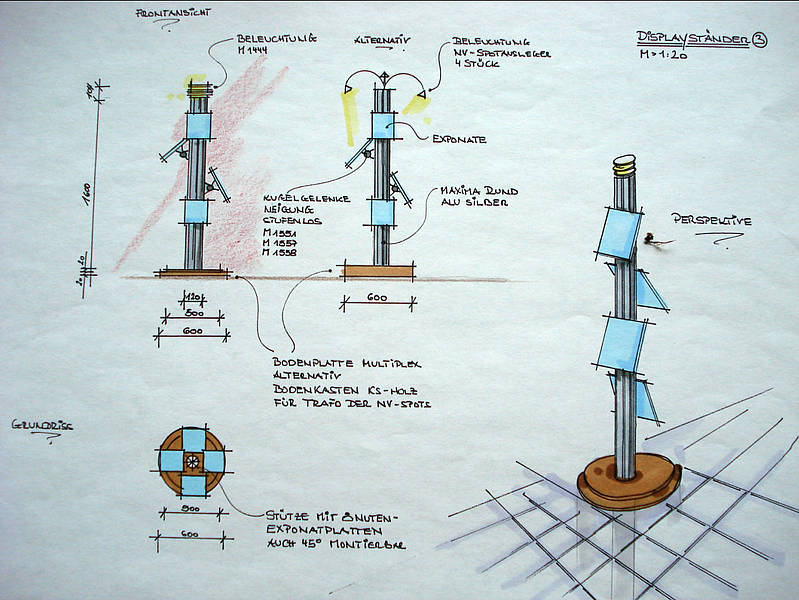 FRONTANSICHT
BELEUCHTUNG
M 1444
ALTERNATIV
BELEUCHTUNG
NV-SPOTAUSLEGER
4 STÜCK
DISPLAYSTÄNDER 3
M > 1:20
EXPONATE
KUGELGELENKE
NEIGUNG
STUFENLOS
M 1551
M 1557
M 1558
MAXIMA RUND
ALU SILBER
PERSPEKTIVE
100
1600
20 20
120
500
600
600
BODENPLATTE MULTIPLEX
ALTERNATIV
BODENKASTEN KS-HOLZ
FÜR TRAFO DER NV-SPOTS
GRUNDRISS
500
600
STÜTZE MIT 8 NUTEN-
EXPONATPLATTEN
AUCH 45° MONTIERBAR